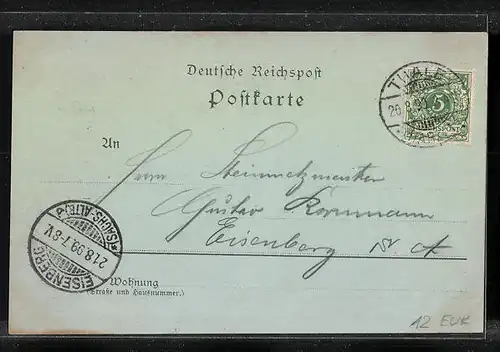 Deutsche Reichspost
Postkarte
THALE
20.8.99
5
REICHSPOST
An
Herrn Steinmetzmeister
Gustav
Eisenberg S. A
EISENBERG
21.8.99.7-8V.
*(SACHS.-ALTB.)*
Wohnung
(Straße und Hausnummer.)
12 EUR